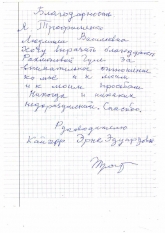 Благодарность
Я, Трофименко
Людмила Васильевна
Хочу выразить благодарность
за
внимательное отношение
ко мне и к моим
и к моим просьбам.
Никогда и никаких
недоразумений. Спасибо.
Руководителю
Эрне Эдуардовне